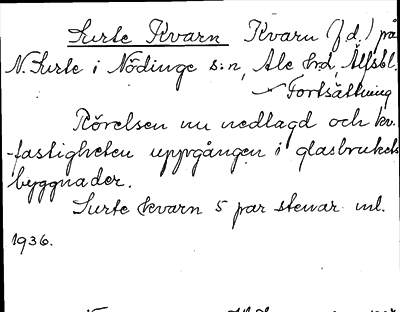 Surte Kvarn Kvarn (f d.) på
N. Surte i Nödinge s:n, Ale hd, Älfsbl.
Fortsättning
Rörelsen nu nedlagd och kv.
-fastigheten uppgången i glasbrukets
byggnader.
Surte kvarn 5 par stenar ml.
1936.